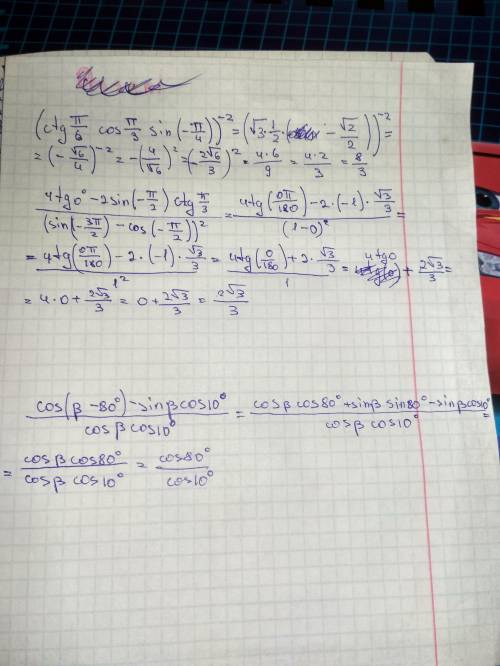 (ctg π/6 cos π/3 sin(-π/4))^-2 = (√3·1/2·(-√2/2))^-2 =
= (-√6/4)^-2 = -(4/√6)^2 = (-2√6/3)^2 = 4·6/9 = 4·2/3 = 8/3
(4tg0° - 2sin(-π/2) ctg π/3)/(sin(-3π/2) - cos(-π/2))^2 = (4tg(0π/180) - 2·(-1)·√3/3)/(1-0)^2 =
= (4tg(0π/180) - 2·(-1)·√3/3)/1^2 = (4tg(0/180) + 2·√3/3)/1 = 4tg0 + 2√3/3 =
= 4·0 + 2√3/3 = 0 + 2√3/3 = 2√3/3
(cos(β - 80°) - sinβcos10°)/(cosβ cos10°) = (cosβ cos80° + sinβ sin80° - sinβcos10°)/(cosβ cos10°) =
= (cosβ cos80°)/(cosβ cos10°) = cos80°/cos10°